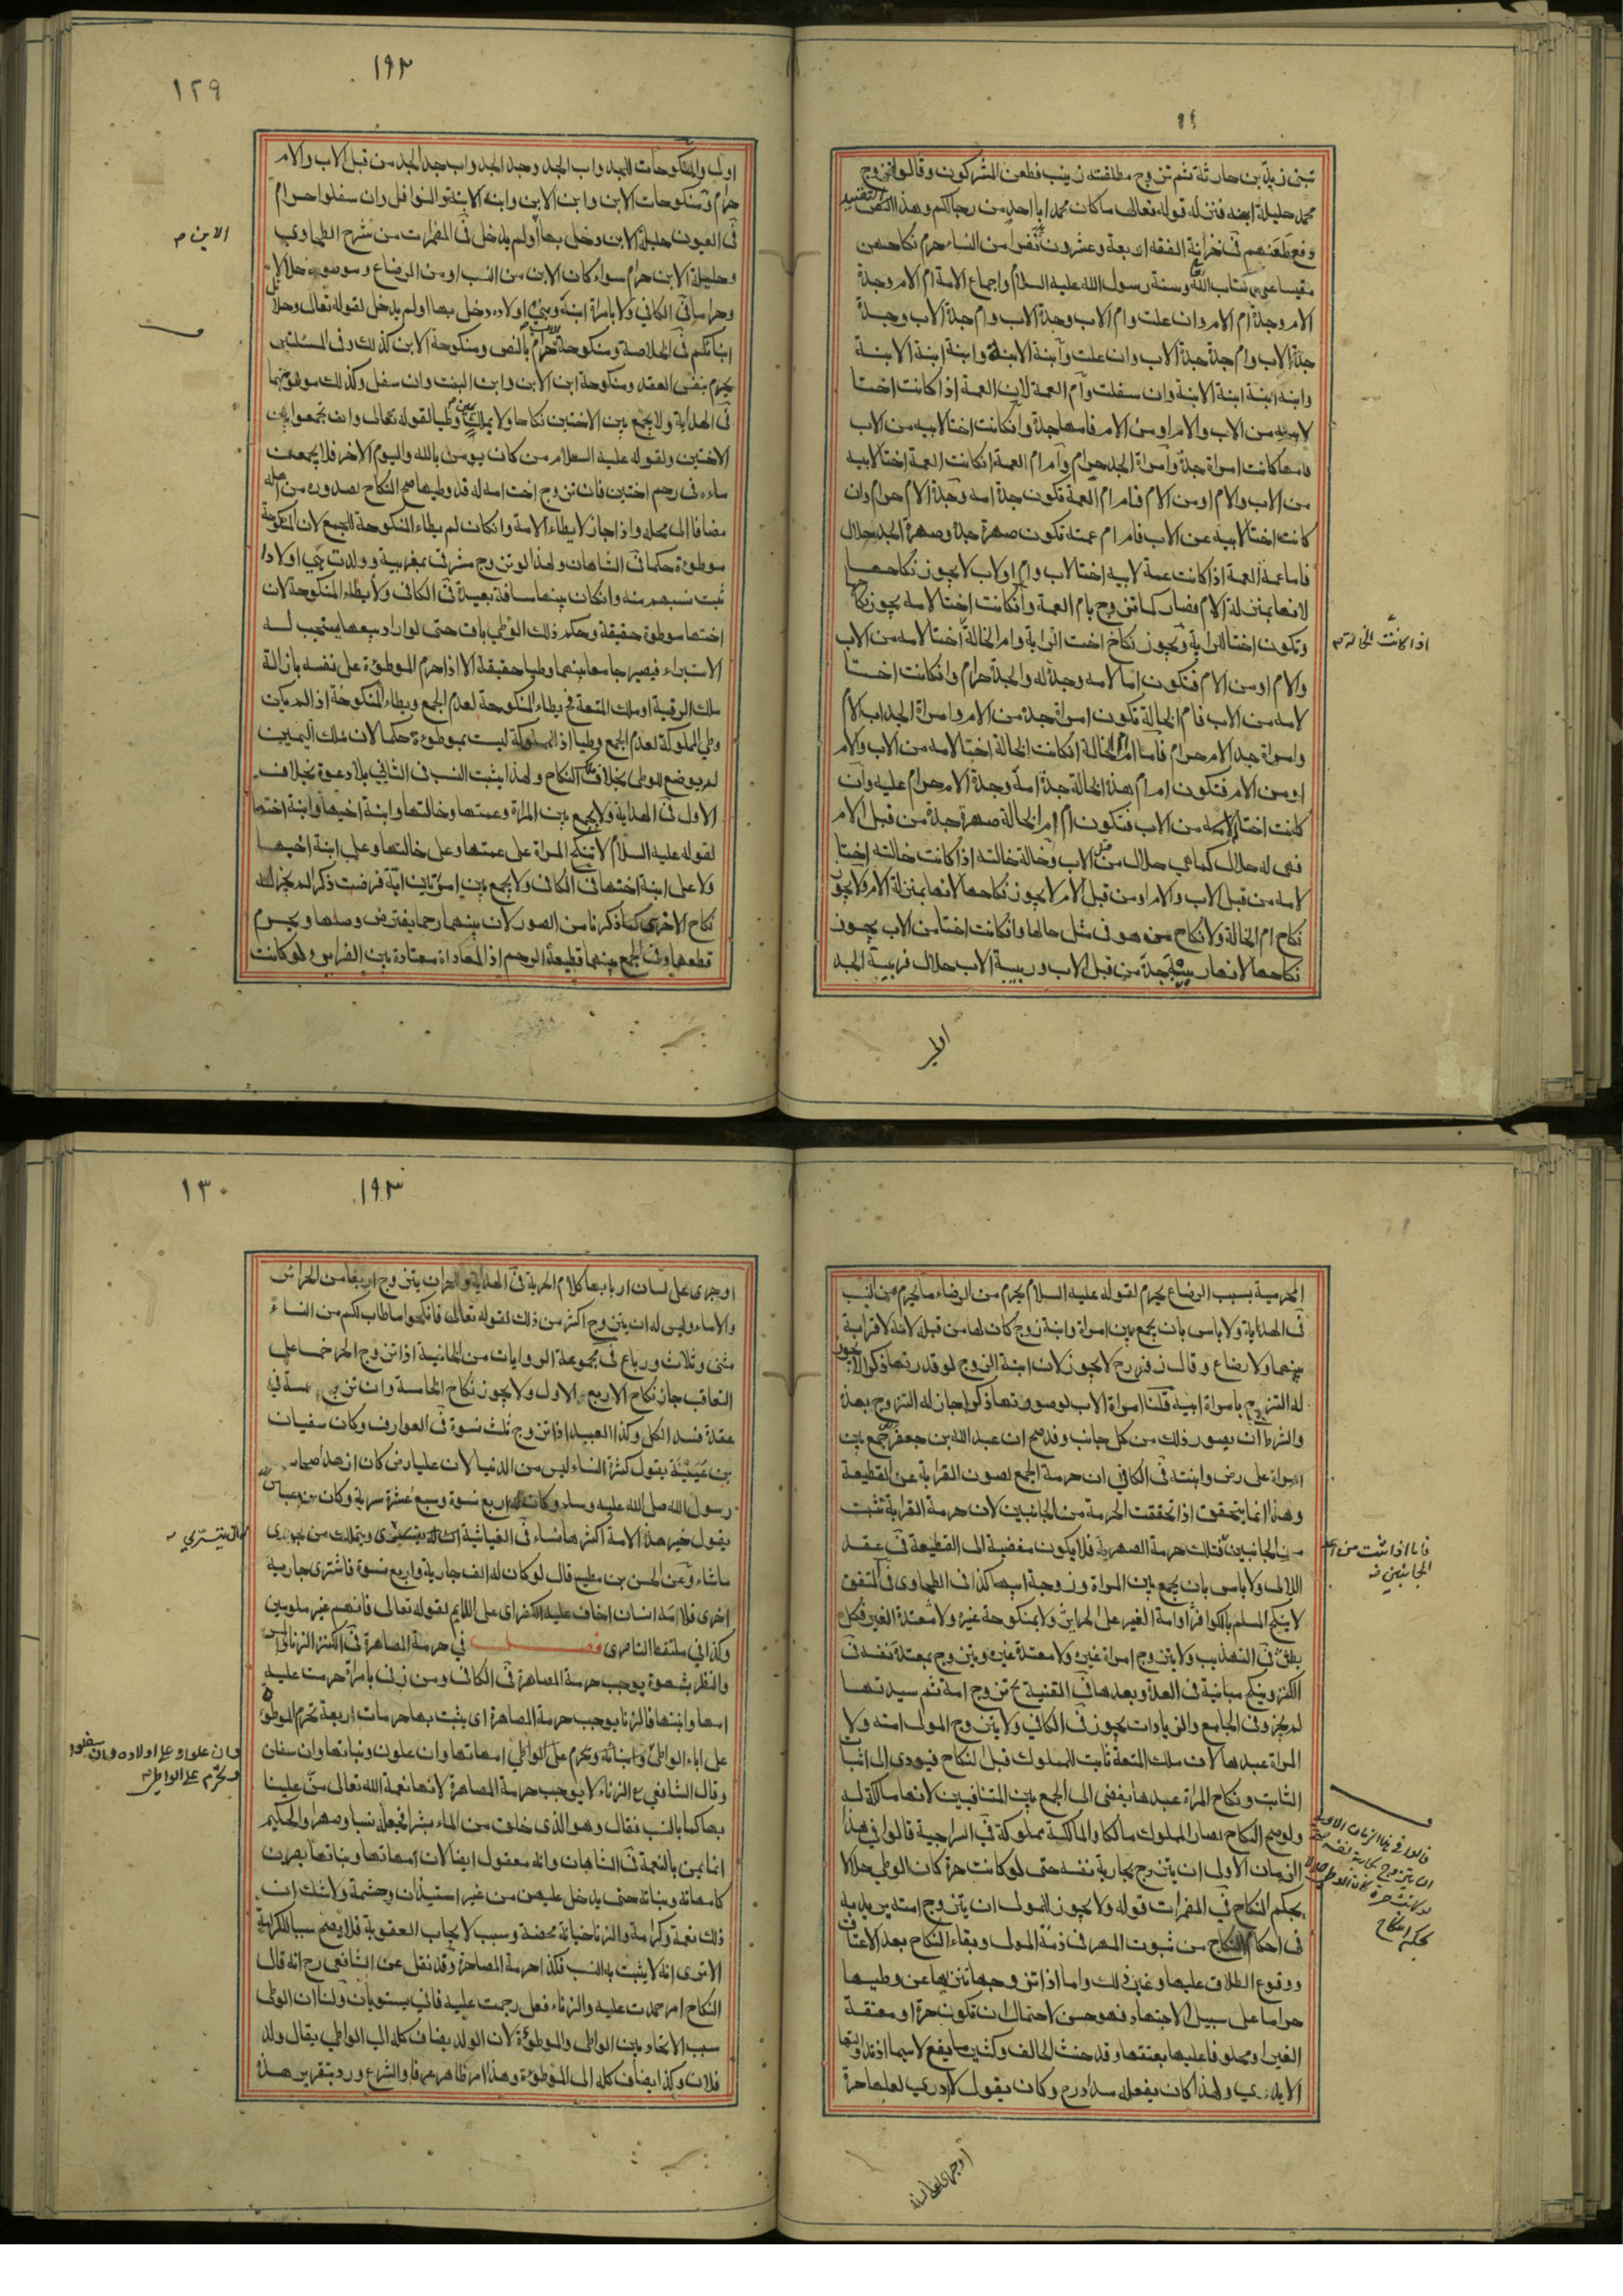 تبنى زيد بن حارثة ثم تزوج مطلقته زينب فطعن المشركون وقالوا تزوج
محمد حليلة ابنه فنزله قوله تعالى ما كان محمد ابا احد من رجالكم وهذا النص
دفع طعنهم فى خزانة الفقه اربعة وعشرون نفرا من النساء حرم نكاحهن
كتاب الله وسنة رسول الله عليه السلام واجماع الامة ام الام وجدة
الام وجدة ام الام وان علت وام الاب وجدة الاب وام جدة الاب وجدة
جدة الاب وام جدة جدة الاب وان علت وابنة الابنة وابنة ابنة الابنة
وابنة ابنة ابنة الابنة وان سفلت وام العمة لاب العمة اذا كانت اختا
لابيه من الاب والام او من الام فامها جدة وان كانت اختا لابيه من الاب
فامها كانت امراة جدة وامراة الجد حرام وام ام العمة ان كانت العمة اختا لابيه
من الاب والام او من الام فام ام العمة تكون جدة امه وجدة الام حرام وان
كانت اختا لابيه عن الاب فام ام عمته تكون صهرة جدة وصهرة الجد حلال
فاما عمة العمة اذا كانت عمة لابيه اختا لاب وام او لاب لا يجوز نكاحها
لانها بمنزلة الام فصار كما تزوج بام العمة وان كانت اختا لامه يجوز نكاحها
وتكون اختا للرابة ويجوز نكاح اخت الرابة وام الخالة اختا لامه من الاب
اذا كانت الخالة
والام او من الام فتكون اما لامه وجدة له والجدة حرام وان كانت اختا
لامه من الاب فام الخالة تكون امراة جده من الام وامراة الجد اب الام
وامراة جد الام حرام فاما ام ام الخالة ان كانت الخالة اختا لامه من الاب والام
او من الام فتكون ام ام هذه الخالة جدة امه وجدة الام حرام عليه وان
كانت اختا لامه من الاب فتكون ام ام الخالة صهرة جدة من قبل الام
فهى له حلال كما هي حلال من قبل الاب وخالة خالته اذا كانت خالته اختا
لامه من قبل الاب والام او من قبل الام لا يجوز نكاحها لانها بمنزلة الام ولا يجوز
نكاح ام الخالة ولا نكاح من هو فى مثل حالها وان كانت اختا من الاب يجوز
نكاحها لانها ربيبة جدة من قبل الاب وربيبة الاب حلال فربيبة الجد
اولى
١٩٣
١٢٩
اولى والمنكوحات للجد واب الجد وجد الجد واب جد الجد من قبل الاب والام
حرام ومنكوحات الابن وابن الابن وابنة الابنة والنوافل وان سفلوا حرام
فى العيون حليلة الابن دخل بها او لم يدخل فى المضمرات من شرح الطحاوي
وحليلة الابن حرام سواء كان الابن من النسب او من الرضاع
الابن
فى الكافي ولا بامراة ابنه وبني اولاده دخل بها او لم يدخل لقوله تعالى وحلائل
ابنائكم فى الخلاصة ومنكوحة الاب حرام بالنص ومنكوحة الابن كذلك وفى المسئلتين
يحرم بنفس العقد ومنكوحة ابن الابن وابن البنت وان سفل وكذلك
فى الهداية ولا يجمع بين الاختين نكاحا ولا بملك يمين وطيا لقوله تعالى وان تجمعوا بين
الاختين ولقوله عليه السلام من كان يومن بالله واليوم الاخر فلا يجمعن
ماءه فى رحم اختين فان تزوج اخت امه له قد وطيها صح النكاح لصدوره من اهله
مضافا الى محله واذا جاز لا يطاء الامة وان كان لم يطاء المنكوحة للجمع لان المنكوحة
موطوءة حكما فى الشاهان ولهذا لو تزوج مشرقى بمغربية وولدت اولادا
ثبت نسبهم منه وان كان بينهما مسافة بعيدة فى الكافى ولا يطاء المنكوحة لان
اختها موطوة حقيقة وحكم ذلك الوطي باق حتى لو اراد بيعها يستحب له
الاستبراء فيصير جامعا بينهما وطيا حقيقة الا اذا حرم الموطوءة على نفسه بازالة
ملك الرقبة او ملك المتعة فح يطاء المنكوحة لعدم الجمع ويطاء المنكوحة اذا لم يكن
وطي المملوكة لعدم الجمع وطيا اذ المملوكة ليست بموطوءة حكما لان ملك اليمين
لم يوضع للوطى بخلاف النكاح ولهذا يثبت النسب فى الثاني بلا دعوة بخلاف
الاول فى الهداية ولا يجمع بين المراة وعمتها وخالتها وابنة اخيها وابنة اختها
لقوله عليه السلام لا تنكح المراة على عمتها وعلى خالتها وعلى ابنة اخيها
ولا على ابنة اختها فى الكافى ولا يجمع بين امراتين اية فرضت ذكرا لم يجز له
نكاح الاخرى كما ذكرنا من الصور لان بينهما رحما يفترض وصلها ويحرم
قطعها وفى الجمع بينهما قطيعة الرحم اذ المعاداة معتادة بين الضراير ولو كانت
المحرمية بسبب الرضاع يحرم لقوله عليه السلام يحرم من الرضاء ما يحرم من النسب
فى الهداية ولا باس بان يجمع بين امراة وابنة زوج كان لها من قبل لانه لا قرابة
بينهما ولا رضاع وقال زفر رح لا يجوز لان ابنة الزوج لو قدرتها ذكرا لا يجوز
له التزوج بامراة ابيه قلنا امراة الاب لو صورتها ذكرا جاز له التزوج بهذه
والشرط ان يصور ذلك من كل جانب وقد صح ان عبد الله بن جعفر جمع بين
امراة على رض وابنته فى الكافي ان حرمة الجمع لصون القرابة عن القطيعة
وهذا انما يتحقق اذا تحققت الحرمة من الجانبين لان حرمة القرابة تثبت
من الجانبين فتلك حرمة الصهرية فلا يكون مفضية الى القطيعة فى عقد
فاما اذا ثبت من احد
الجانبين
اللالى ولا باس بان يجمع بين المراة وزوجة ابيها كذا فى الطحاوى فى المتفق
لا ينكح المسلم بالكوافر او امة الغير على الحرائر ولا بمنكوحة غيره ولا معتدة الغير فكل
بطل فى التهذيب ولا يتزوج امراة غيره ولا معتدة غيره ويتزوج بمعتدة نفسه فى
الكنز وينكح مبانته فى العدة وبعدها فى القنية تزوج امة ثم سيدتها
لم يجز وفى الجامع والزيادات يجوز فى الكافي ولا يتزوج المولى امته ولا
المراة عبدها لان ملك المتعة ثابت للمملوك قبل النكاح فيودى الى اثبات
الثابت ونكاح المراة عبدها يفضى الى الجمع بين المتنافيين لانها مالكة له
ولو صح النكاح لصار المملوك مالكا والمالكية مملوكة فى السراجية قالوا فى هذا
الزمان الاولى ان يتزوج بجارية نفسه حتى لو كانت حرة كان الوطي حلالا
قالوا فى هذا الزمان الاولى
ان يتزوج بجارية نفسه حتى
لو كانت حرة كان الوطي حلالا
بحكم النكاح
بحكم النكاح فى المضمرات قوله ولا يجوز للمولى ان يتزوج امته يريد به
فى احكام النكاح من ثبوت المهر فى ذمة المولى وبقاء النكاح بعد الاعتاق
ووقوع الطلاق عليها وغير ذلك واما اذا تزوجها تنزها عن وطيها
حراما على سبيل الاحتياط فهو حسن لاحتمال ان تكون حرة او معتقة
الغير او محلوفا عليها بعتقها وقد حنث الحالف وكثيرا ما يقع لا سيما
الايدي ولهذا كان يفعله وكان يقول لا ادري لعلها حرة
او جرى على لسان
١٩٣
١٣٠
او جرى على لسان اربابها كلام الحرية فى الهداية وللحر ان يتزوج اربعا من الحرائر
والاماء وليس له ان يتزوج اكثر من ذلك لقوله تعالى فانكحوا ما طاب لكم من النساء
مثنى وثلاث ورباع فى مجموعة الروايات من الخانية اذا تزوج الحر خمسا على
التعاقب جاز نكاح الاربع الاول ولا يجوز نكاح الخامسة وان تزوج خمسة في
عقدة فسد الكل وكذا العبد اذا تزوج ثلث نسوة فى العوارف وكان سفيان
بن عيينة يقول كثرة النساء ليس من الدنيا لان عليا رض كان ازهد اصحاب
رسول الله صلى الله عليه وسلم وكان له اربع نسوة وسبع عشرة سرية وكان بن عباس
يقول خير هذه الامة اكثرها نساء فى الغياثية ويتملك من الجواري
يتسرّي
ما شاء وعن الحسن بن مطيع قال لو كان له الف جارية واربع نسوة فاشترى جارية
اخرى فلامه انسان اخاف عليه الكفر اى على اللايم لقوله تعالى فانهم غير ملومين
وكذا في ملتقط الناصرى فصل في حرمة المصاهرة فى الكنز الزنا واللمس
والنظر بشهوة يوجب حرمة المصاهرة فى الكافى ومن زنى بامراة حرمت عليه
امها وابنتها فالزنا يوجب حرمة المصاهرة اى يثبت بها حرمات اربعة تحرم الموطوة
على اباء الواطئ وابنائه وتحرم على الواطي امهاتها وان علون وبناتها وان سفلن
وان علوا وعلى اولاده وان سفلوا
وتحرّم على الواطي
وقال الشافعي ع الزناء لا يوجب حرمة المصاهرة لانها نعمة الله تعالى منّ علينا
بها كما بالنسب فقال وهو الذى خلق من الماء بشرا فجعله نسبا وصهرا والحكيم
انما يمن بالنعمة فى الشاهان وانه معقول ايضا لان امهاتها وبناتها يصرن
كامهاته وبناته حتى يدخل عليهن من غير استيذان وحشمة ولا شك ان
ذلك نعمة وكرامة والزنا خيانة محضة وسبب لايجاب العقوبة فلا يصح سببا للكرامة
الا ترى انه لا يثبت به النسب فكذا حرمة المصاهرة وقد نقل عن الشافعي رح انه قال
النكاح امر حمدت عليه والزناء فعل رجمت عليه فاني يستويان ولنا ان الوطى
سبب الاتحاد بين الواطى والموطوءة لان الولد يضاف كله الى الواطي يقال ولد
فلان وكذا يضاف كله الى الموطوءة وهذا امر ظاهر عرفا والشرع ورد بتقرير هذا